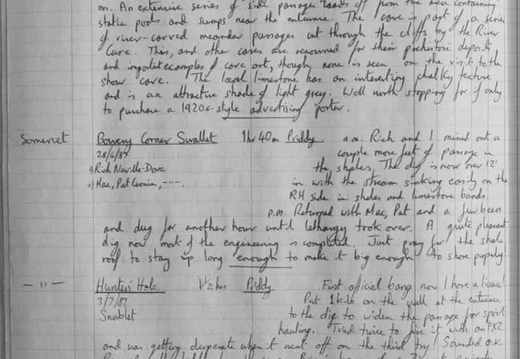 on. An extensive series of side passages leads off from the area containing
static pools and sumps near the entrance. The cave is part of a series
of river-carved meander passages cut through the cliffs by the River
Cure. This, and other caves are renowned for their prehistoric deposits
and examples of cave art, though none is seen on the visit to the
show cave. The local limestone has an interesting chalky texture
and is an attractive shade of light grey. Well worth stopping for if only
to purchase a 1920s-style advertising poster.
Somerset Bowery Corner Swallet 1hr 40m Priddy a.m. Rich and I mined out a
28/6/87 couple more feet of passage in
i) Rich Neville-Dove the shales. The dig is now over 12'
ii) Mac, Pat Cronin, ---. in with the stream sinking easily on the
RH side in shales and limestone bands.
p.m. Returned with Mac, Pat and a few beers
and dug for another hour until lethargy took over. A quite pleasant
dig now most of the engineering is completed. Just pray for the shale
roof to stay up long enough to make it big enough to shore properly.
— " — Hunters' Hole 1/2 hrs Priddy First official bang now I have a licence.
3/7/87 Put 1 1/2 lb on the wall at the entrance
Snablet to the dip to widen the passage for spoil
hauling. Tried twice to fire it with an
and was getting desperate when it went off on the third try! Sounded O.K.